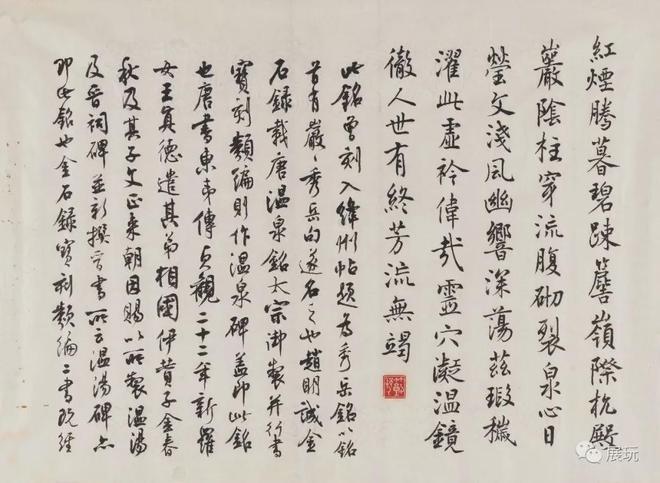 紅煙騰暮碧踈簷嶺際杭殿
巖陰柱穿流腹砌裂泉心日
瑩文淺風幽響深蕩茲瑕穢
濯此虛衿偉哉靈穴凝溫鏡
徹人世有終芳流無竭
此銘曾刻入絳州帖題為秀岳銘以銘
首有巖〻秀岳句遂名之也趙明誠金
石錄載唐溫泉銘太宗御製并行書
寶刻類編則作溫泉碑蓋即此銘
也唐書東夷傳貞觀二十二年新羅
女王真德遣其弟相國伊贊子金春
秋及其子文正來朝因賜以所製溫湯
及晉祠碑並新撰晉書所云溫湯碑亦
即此銘也金石錄寶刻類編二書既經
展玩